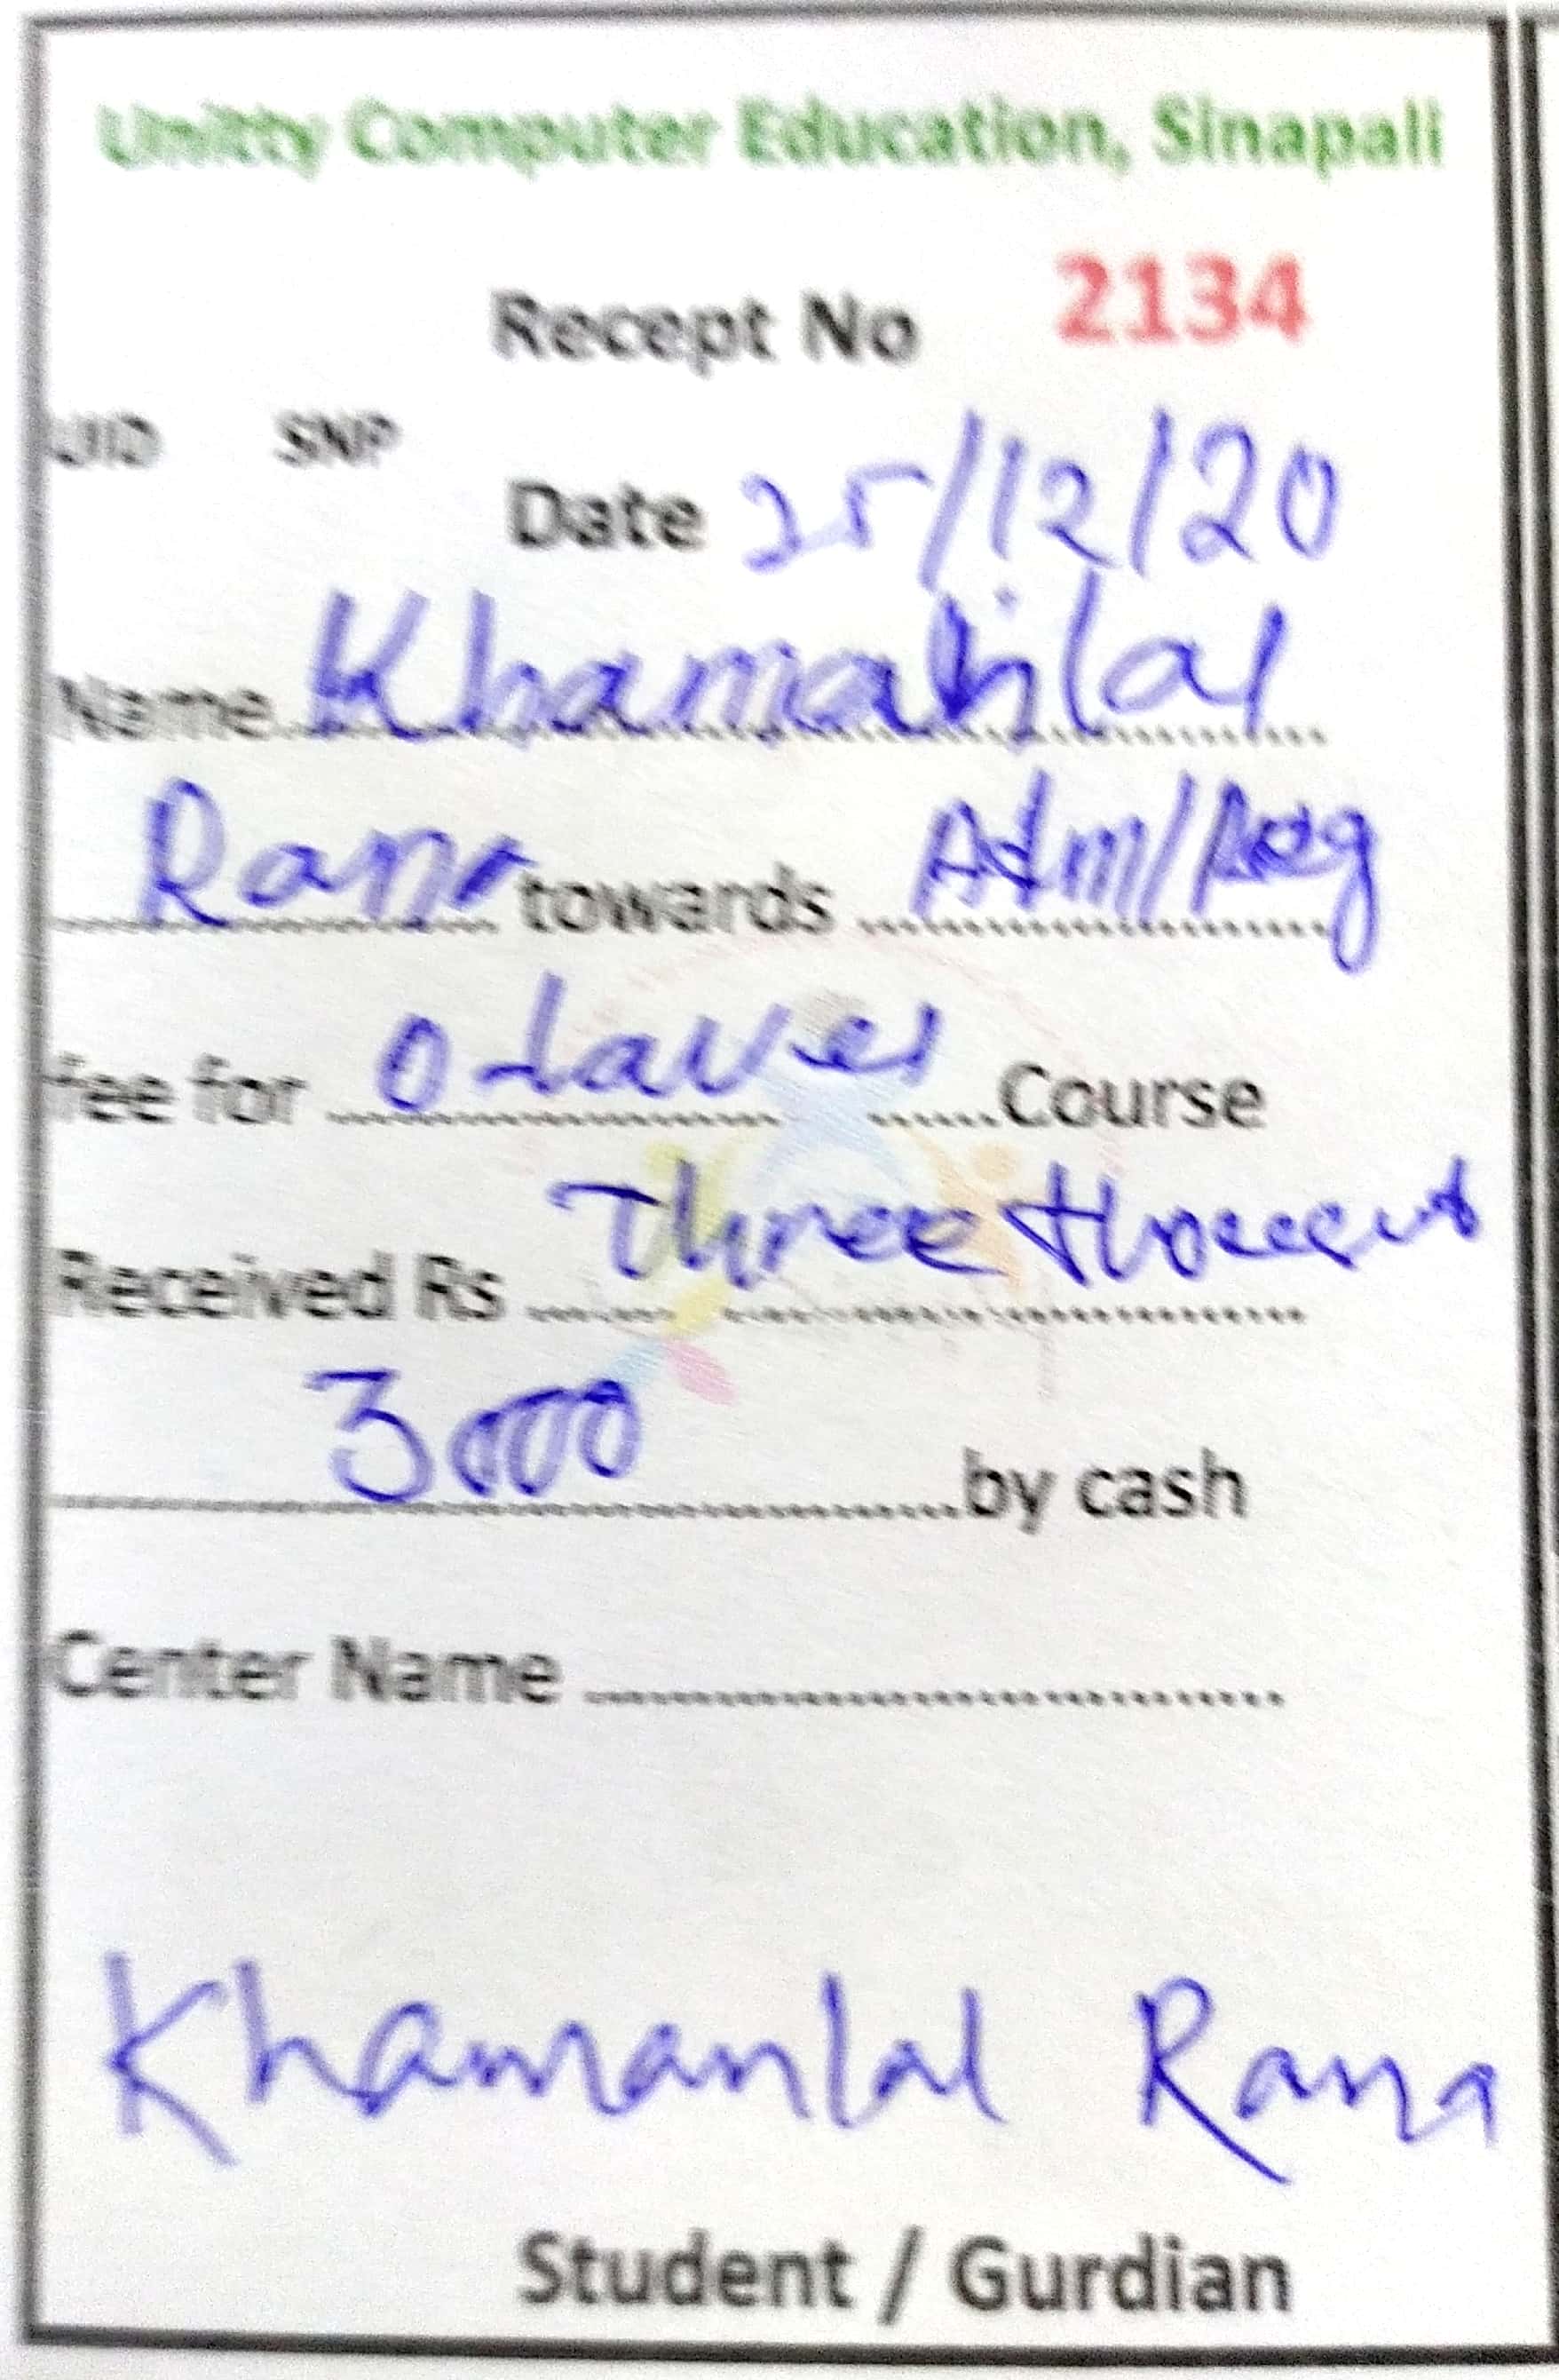 Unitty Computer Education, Sinapali
Recept No 2134
UID SNP
Date 25/12/20
Name Khamanlal
Rana towards Adm/Reg
fee for Course
Received Rs Three
3000 by cash
Center Name
Khamanlal Rana
Student / Gurdian